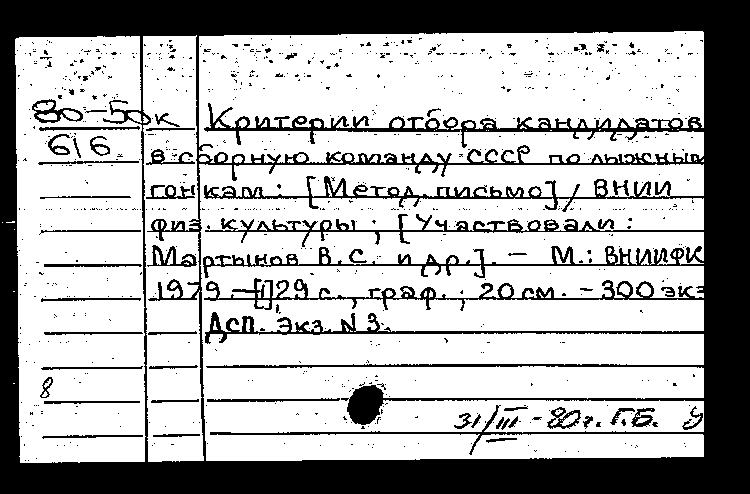 80-50к Критерии отбора кандидатов
616 в сборную команду СССР по лыжным
гонкам: [Метод. письмо] / ВНИИ
физ. культуры ; [Участвовали:
Мартынов В.С. и др.]. – М.: ВНИИФК
1979. – [1], 29 с., граф. ; 20 см. – 300 экз
Дсп. Экз. N 3.
8
31/III - 80 г. Г.Б.